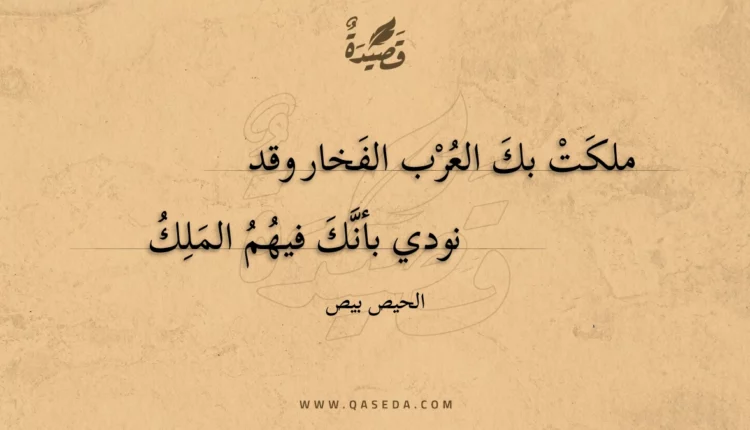 قَصِيْدَةٌ
ملكَتْ بكَ العُرْب الفَخار وقد
نودي بأنَّكَ فيهُمُ المَلِكُ
الحيص بيص
WWW.QASEDA.COM